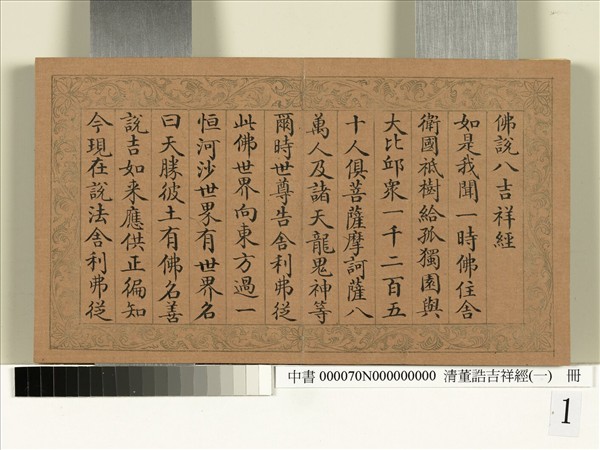 佛說八吉祥經
如是我聞一時佛住舍
衛國祇樹給孤獨園與
大比邱衆一千二百五
十人俱菩薩摩訶薩八
萬人及諸天龍鬼神等
爾時世尊告舍利弗從
此佛世界向東方過一
恒河沙世界有世界名
曰天勝彼土有佛名善
說吉如来應供正徧知
今現在說法舍利弗從
中書 000070N000000000 清董誥吉祥經(一) 冊
1